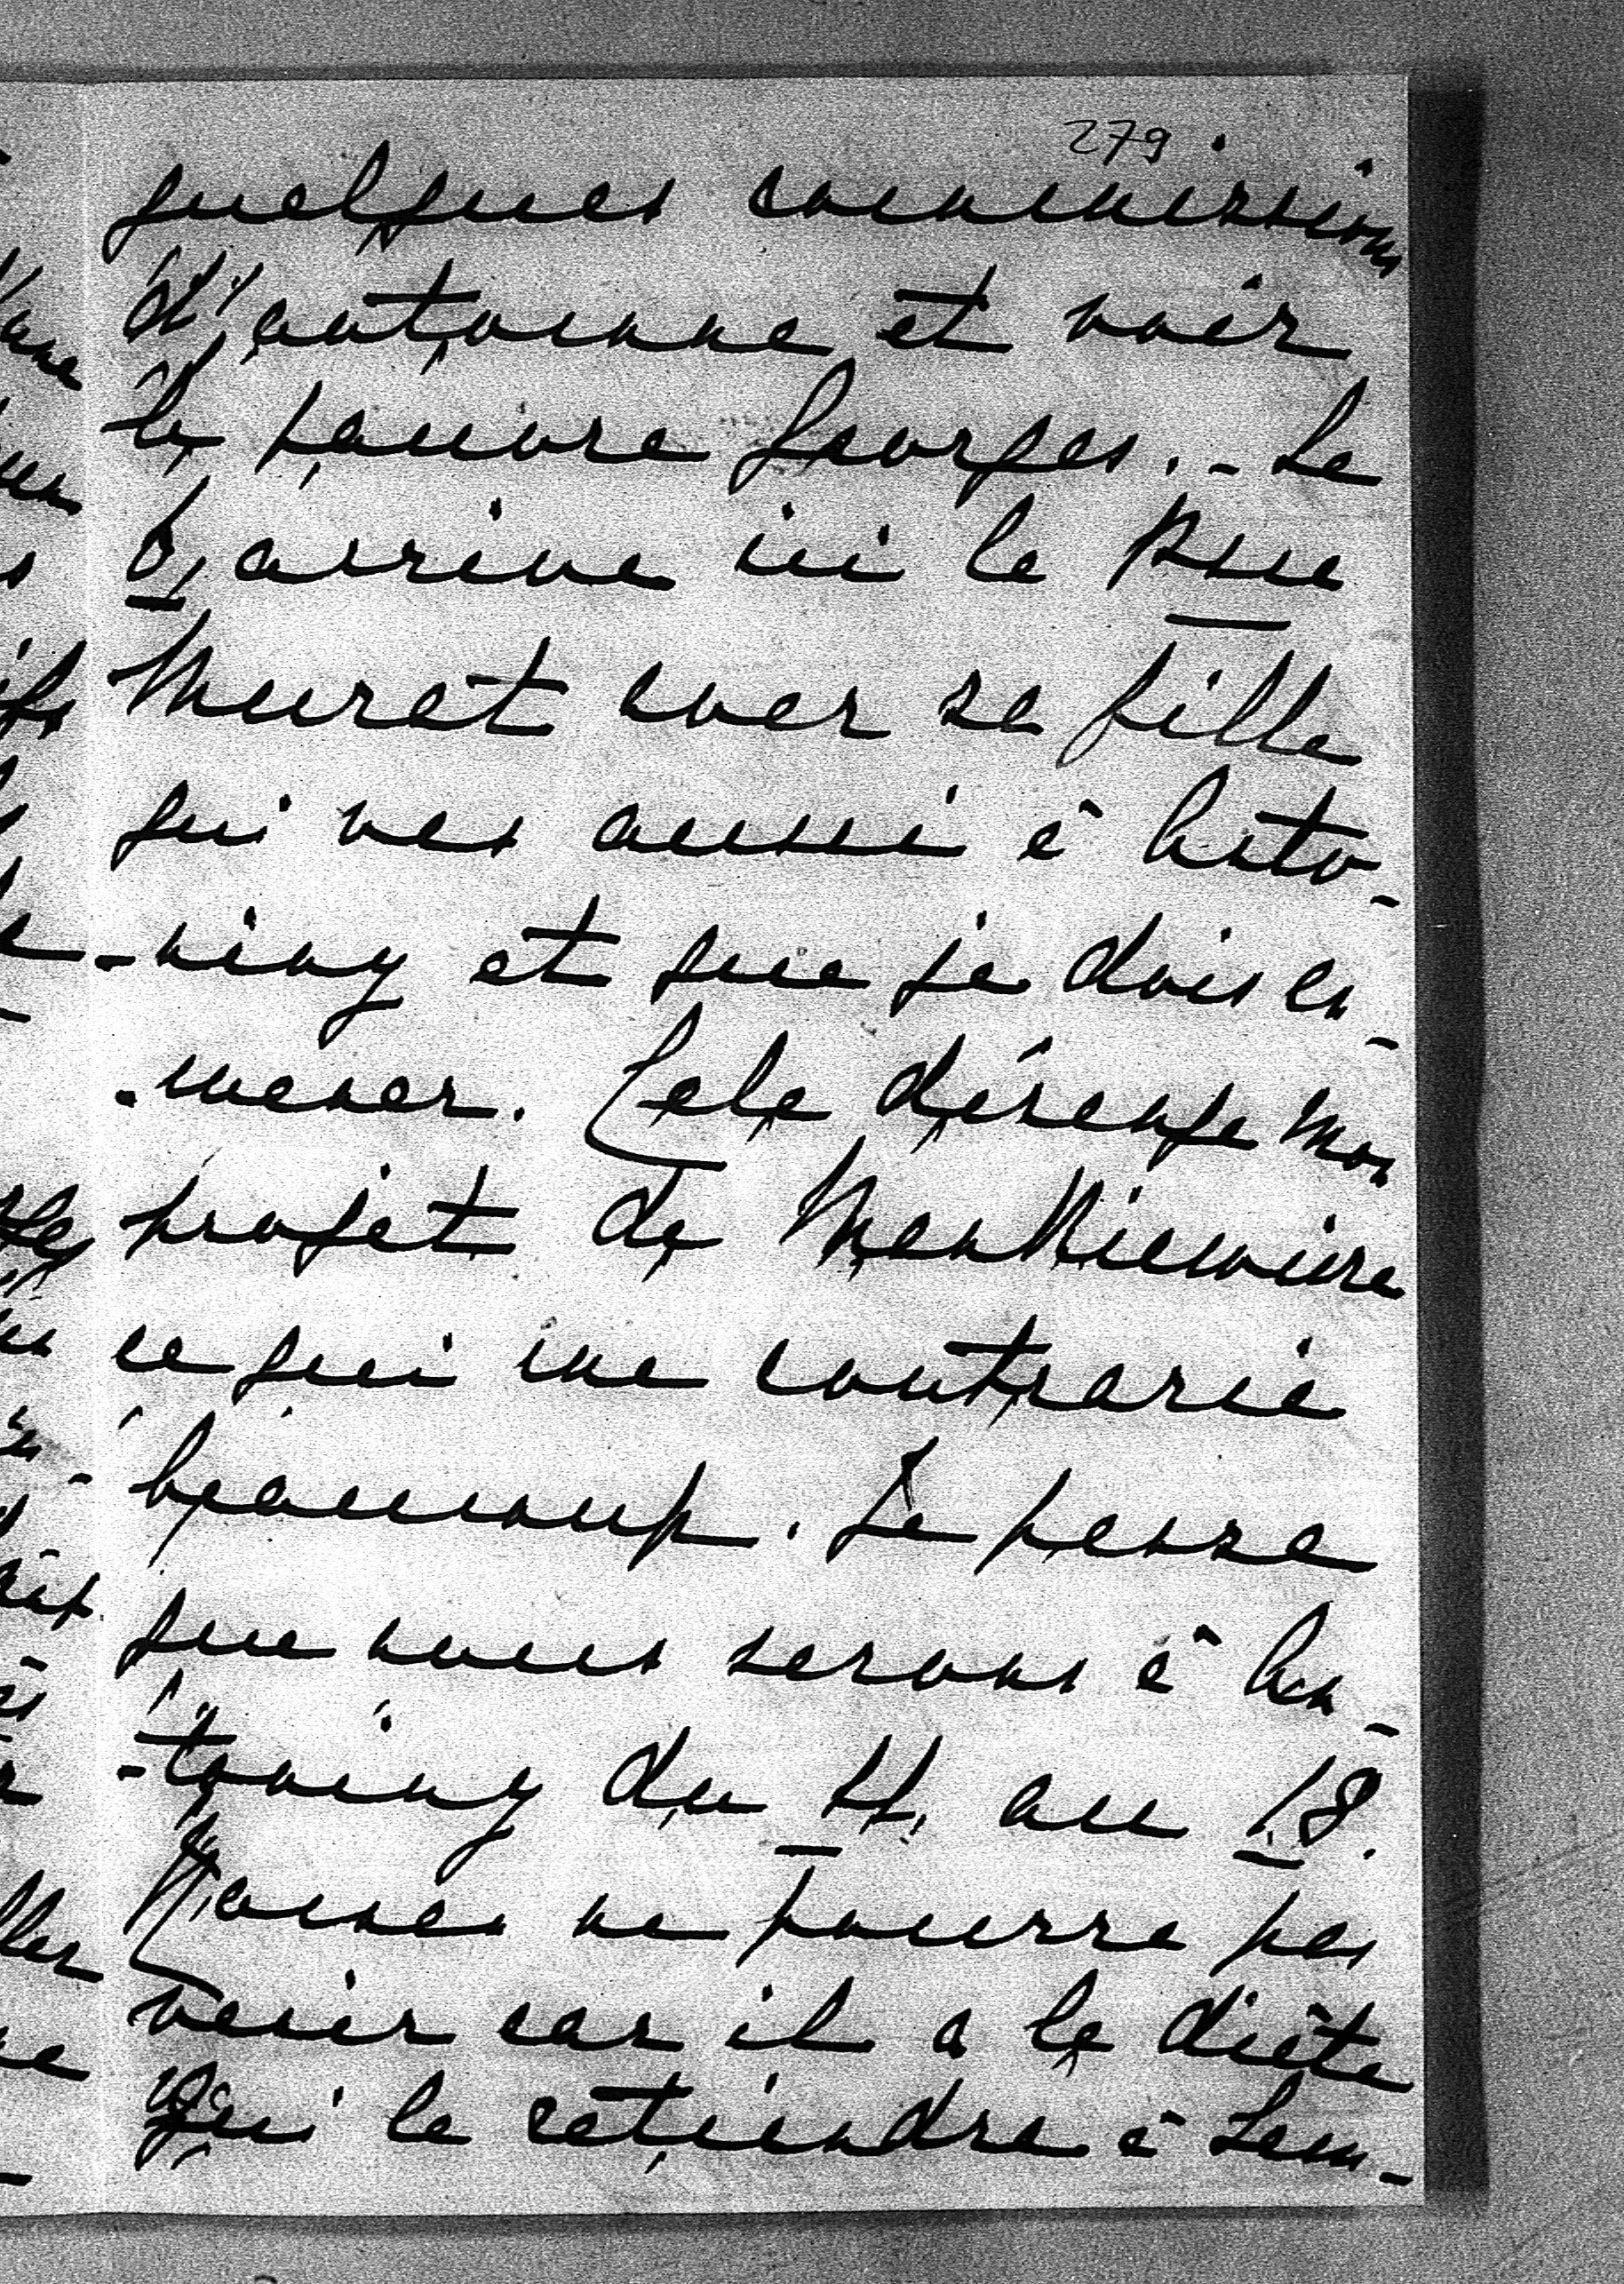 279
quelques commissions
d'automne et voir
le pauvre Georges. - Le
8, arrive ici le Pcce
Murat avec sa fille
qui vas aussi à Anto-
-niny et que je dois em-
-mener. Cela dérange mon
projet de Mankiewicze
ce qui me contrarie
beaucoup. Je pense
que nous serons à An-
-toniny du 11 au 18.
ne pourra pas
venir car il a la diète
qui le retiendra à Lem-